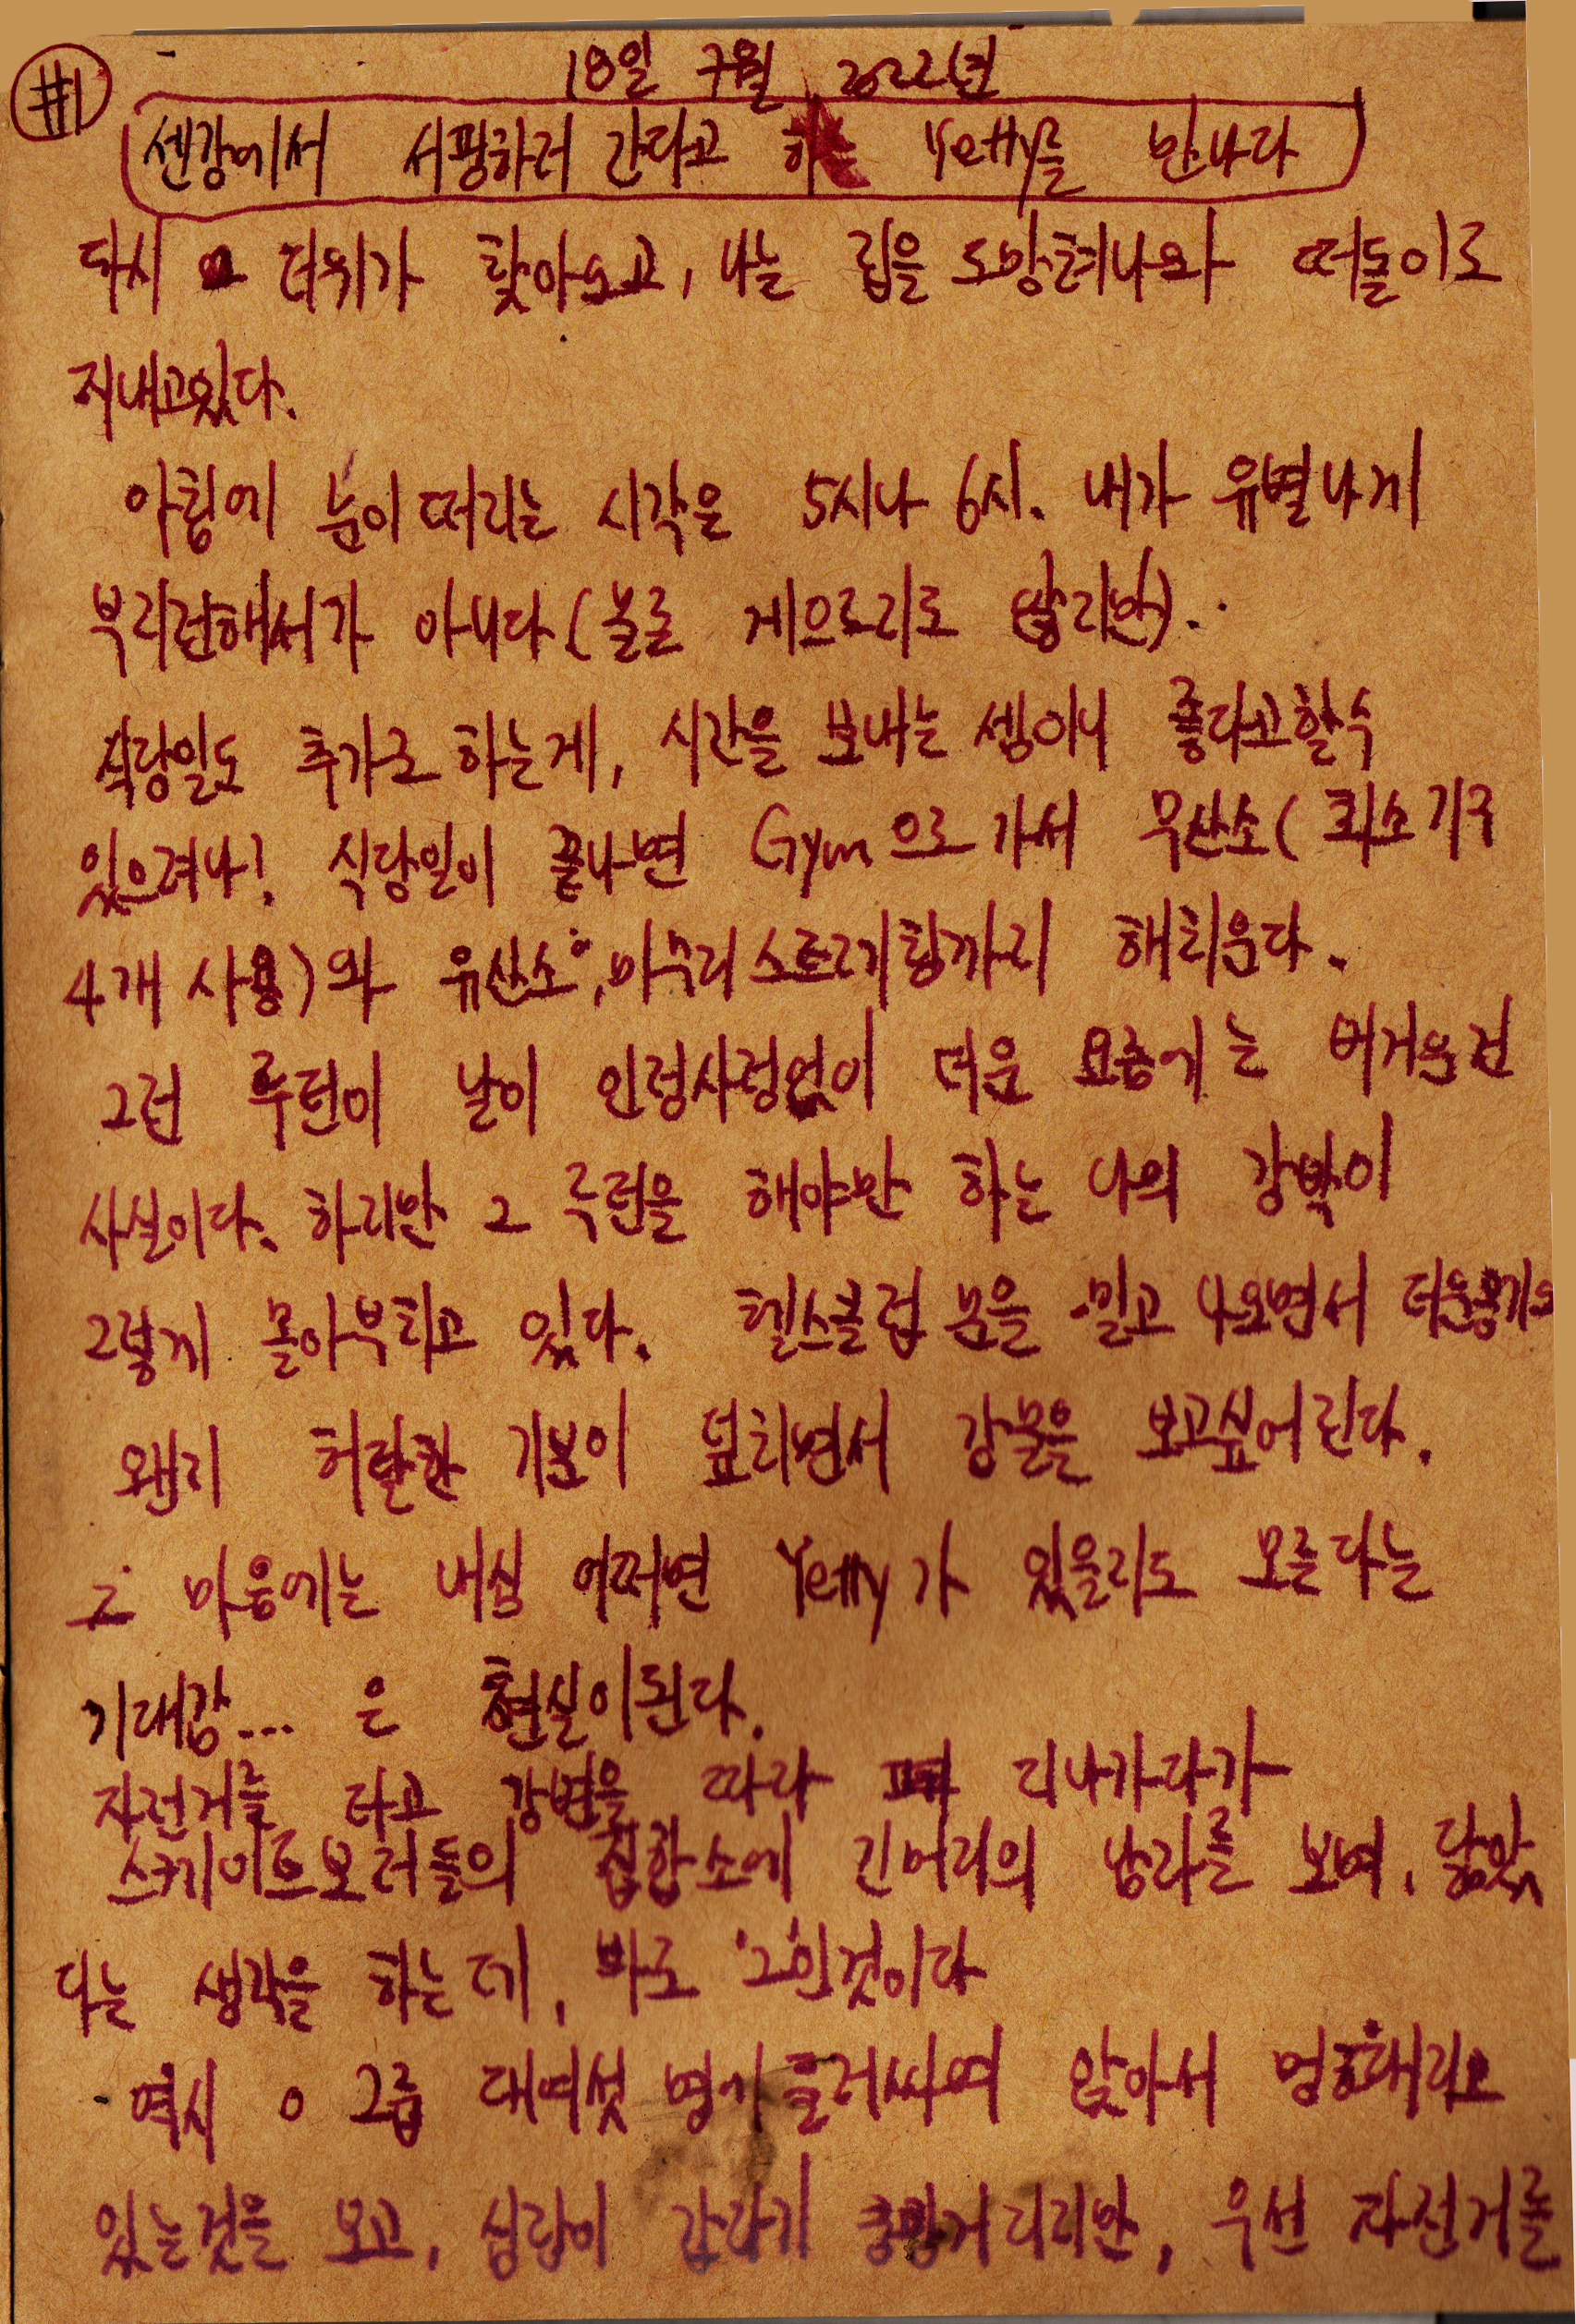 #1
18일 7월 2022년
센강에서 서핑하러 간다고 하는 Yetty를 만나다
다시 더위가 찾아오고, 나는 집을 도망쳐나와 떠돌이로
지내고있다.
아침에 눈이 떠지는 시각은 5시나 6시. 내가 유별나게
부지런해서가 아니다(놀로 게으르지도 않지만).
식당일도 추가로 하는게, 시간을 보내는 셈이니 좋다고할수
있으려나! 식당일이 끝나면 Gym으로 가서 무산소(최소 기구
4개 사용)와 유산소, 마무리 스트레칭까지 해치운다.
그런 루틴이 날이 인정사정없이 더운 요즘에는 버거운건
사실이다. 하지만 그 루틴을 해야만 하는 나의 강박이
그렇게 몰아부치고 있다. 헬스클럽 문을 밀고 나오면서 더운공기와
왠지 허탈한 기분이 덮치면서 강물을 보고싶어진다.
그 마음에는 내심 어쩌면 Yetty가 있을지도 모른다는
기대감... 은 현실이된다.
자전거를 타고 강변을 따라 지나가다가
스케이트보더들의 집합소에 긴머리의 남자를 보며, 닮았
다는 생각을 하는데, 바로 '그'인것이다
역시 그룹 대여섯 명에 둘러싸여 앉아서 멍때리고
있는것을 보고, 심장이 갑자기 쿵쾅거리지만, 우선 자전거를